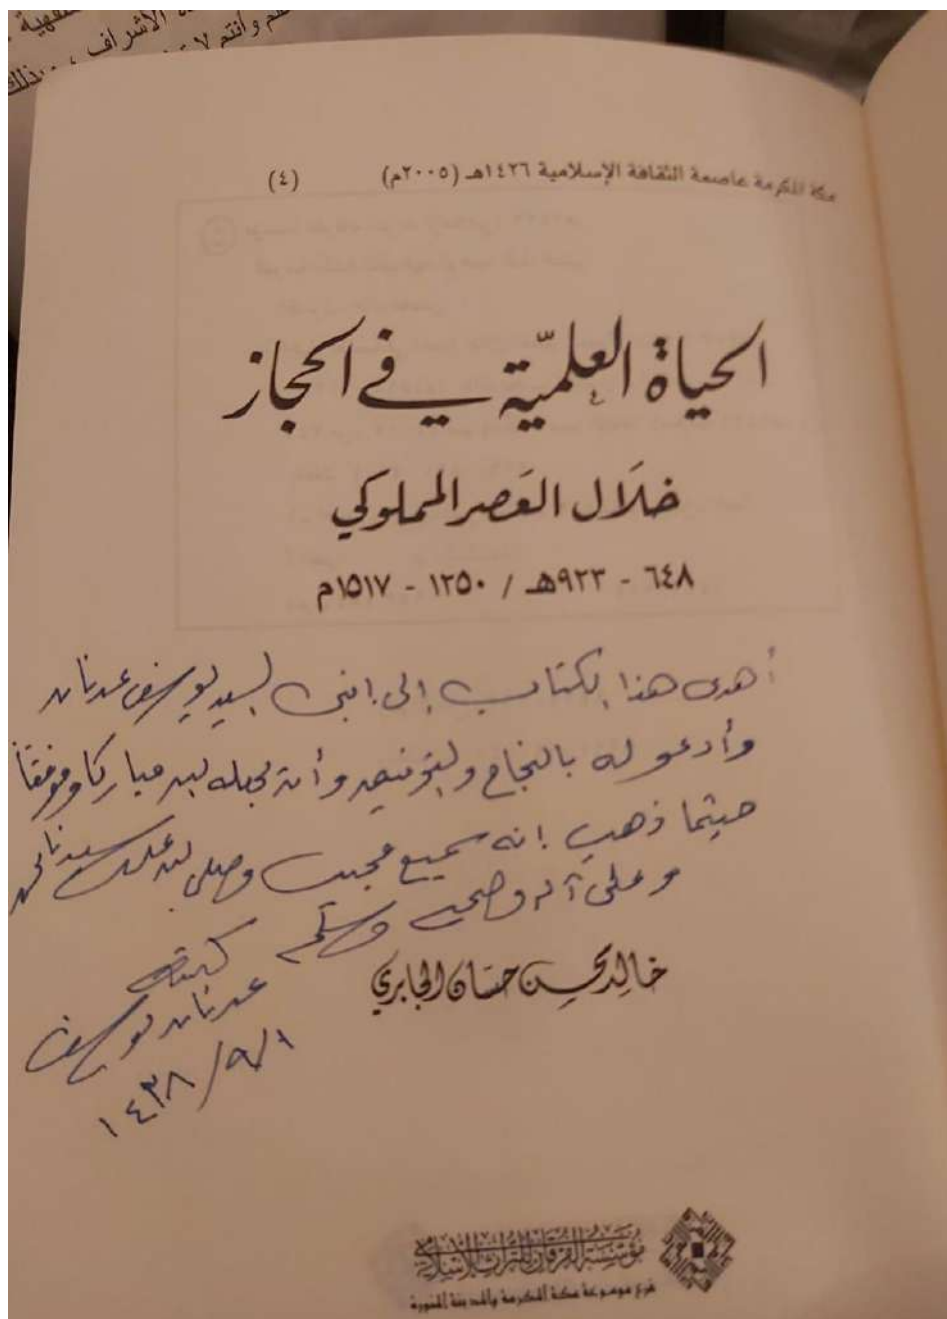 هم وأنتم لا
الأشراف
مكة المكرمة عاصمة الثقافة الإسلامية ١٤٢٦هـ (٢٠٠٥م) (٤)
الحياة العلميّة في الحجاز
خلَال العَصر المملوكي
٦٤٨ - ٩٢٣هـ / ١٢٥٠ - ١٥١٧م
أهدي هذا الكتاب إلى ابني السيد يوسف عدنان
وأدعو له بالنجاح والتوفيق وأن يجعله الله مباركا وموفقاً
حيثما ذهب إنه سميع مجيب وصلى الله على سيدنا محمد
وعلى آله وصحبه وسلم
كتبه
خالد محسن حسَان الجابري
عدنان يوسف
١٤٣٨/٩/١
مؤسسة الفرقان للتراث الإسلامي
فرع موسوعة مكة المكرمة والمدينة المنورة